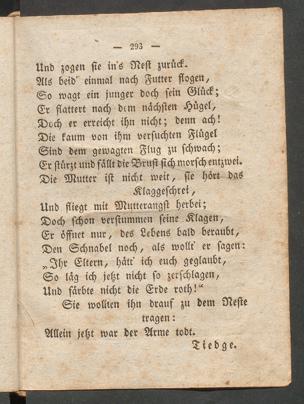 — 293 —
Und zogen sie in's Nest zurück.
Als beid' einmal nach Futter flogen,
So wagt ein junger doch sein Glück;
Er flattert nach dem nächsten Hügel,
Doch er erreicht ihn nicht; denn ach!
Die kaum von ihm versuchten Flügel
Sind dem gewagten Flug zu schwach;
Er stürzt und fällt die Brust sich morsch entzwei.
Die Mutter ist nicht weit, sie hört das
Klaggeschrei,
Und fliegt mit Mutterangst herbei;
Doch schon verstummen seine Klagen,
Er öffnet nur, des Lebens bald beraubt,
Den Schnabel noch, als wollt' er sagen:
„Ihr Eltern, hätt' ich euch geglaubt,
So läg ich jetzt nicht so zerschlagen,
Und färbte nicht die Erde roth!“
Sie wollten ihn drauf zu dem Neste
tragen:
Allein jetzt war der Arme todt.
Tiedge.